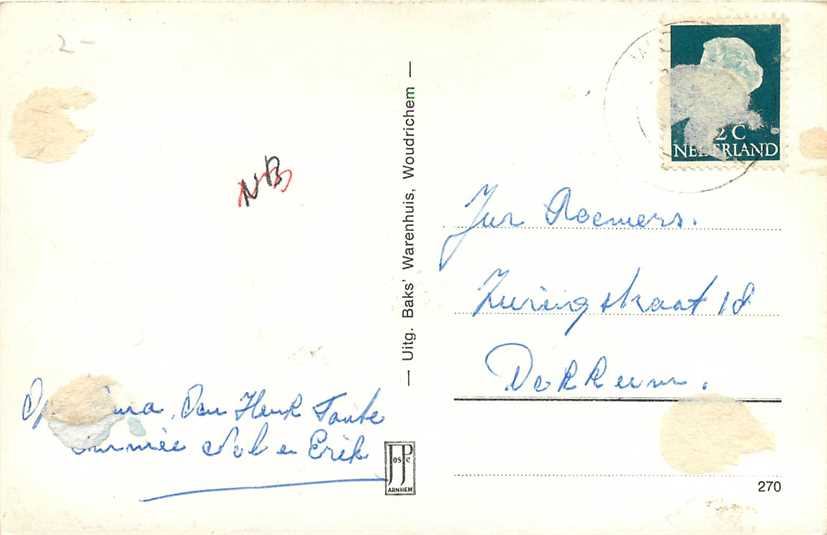 2-
NB
Uitg. Baks' Warenhuis, Woudrichem
2 C
NEDERLAND
Jur Roemers.
Zuringstraat 18
Den Henk Tante
Nel en Erik
JosPé
ARNHEM
270